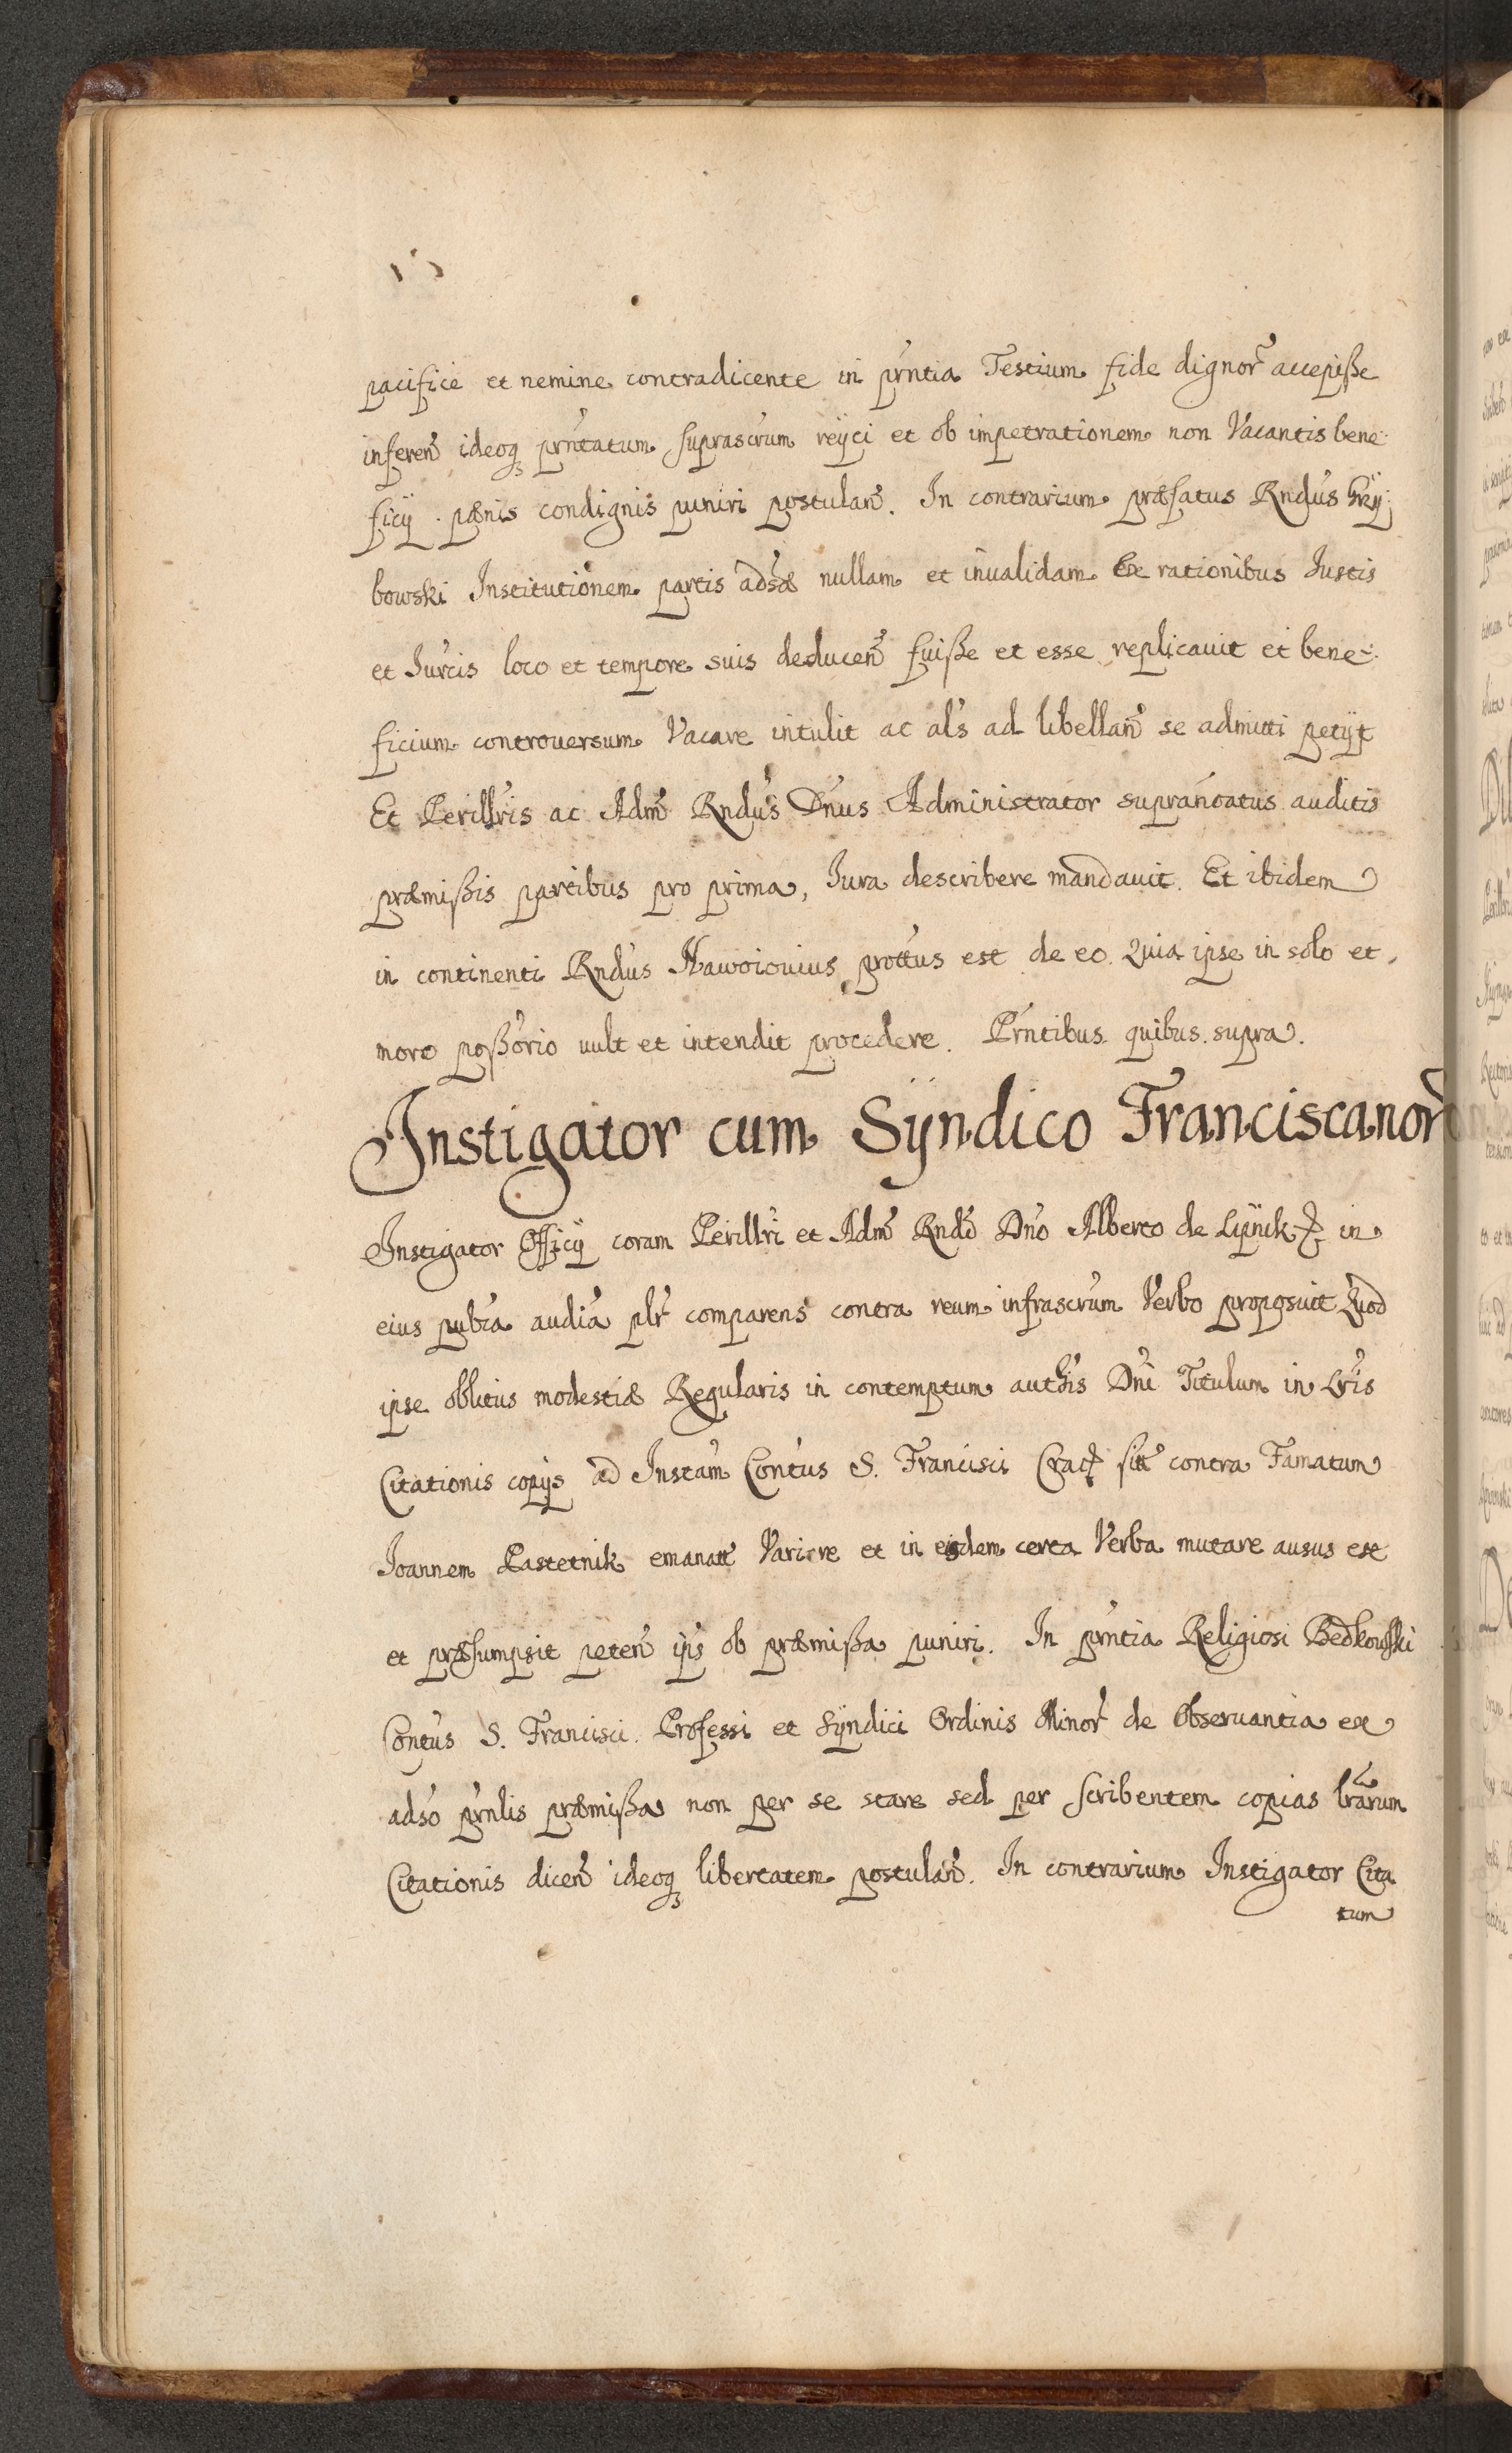 pacifice et nemine contradicente in prńtia Testium fide dignor̃ accepiße
inferen̉ ideoq̨ prńtatum suprascr̉um reijci et ob impetrationem non Vacantis bene-
ficij pænis condignis puniri postulan̉. In contrarium præfatus Rndus Grzy-
bowski Institutionem partis adsæ nullam et inualidam Ex rationibus Iustis
et Iur̉cis loco et tempore suis deducen̉ fuiße et esse replicauit et bene-
ficium controuersum Vacare intulit ac al̉s ad libellan̉ se admitti petijt
Et Perill̉ris ac Adm̉ Rndus Dnus Administrator supranõatus auditis
præmißis partibus pro prima, Iura describere mandauit. Et ibidem
in continenti Rndus Nawoiouius prottus est de eo. Quia ipse in solo et
more poßorio uult et intendit procedere. Prńtibus quibus supra.
Instigator cum Syndico Franciscanor̃
Instigator Officij coram Perill̉ri et Adm̉ Rndo Dno Alberto de Lipnik in
eius publ̉ca audiã plr̉ comparens contra reum infrascr̉um Verbo proposuit Quod
ipse oblitus modestiæ Regularis in contemptum auth̉is Dni Titulum in Lr̉is
Citationis copijs ad Instam̃ Contus S. Francisci Crac̨ contra Famatum
Ioannem Pastetnik emanatt̉ Variare et in eisdem certa Verba mutare ausus est
et præsumpsit peten̉ ip̉s ob præmißa puniri. In prńtia Religiosi Bedkowski
Contus S. Francisci Professi et Syndici Ordinis Minor̃ de Obseruantia ex
adso prńlis præmißa non per se stare sed per scribentem copias lrãrum
Citationis dicen̉ ideoq̨ libertatem postulan̉. In contrarium Instigator Cita
tum